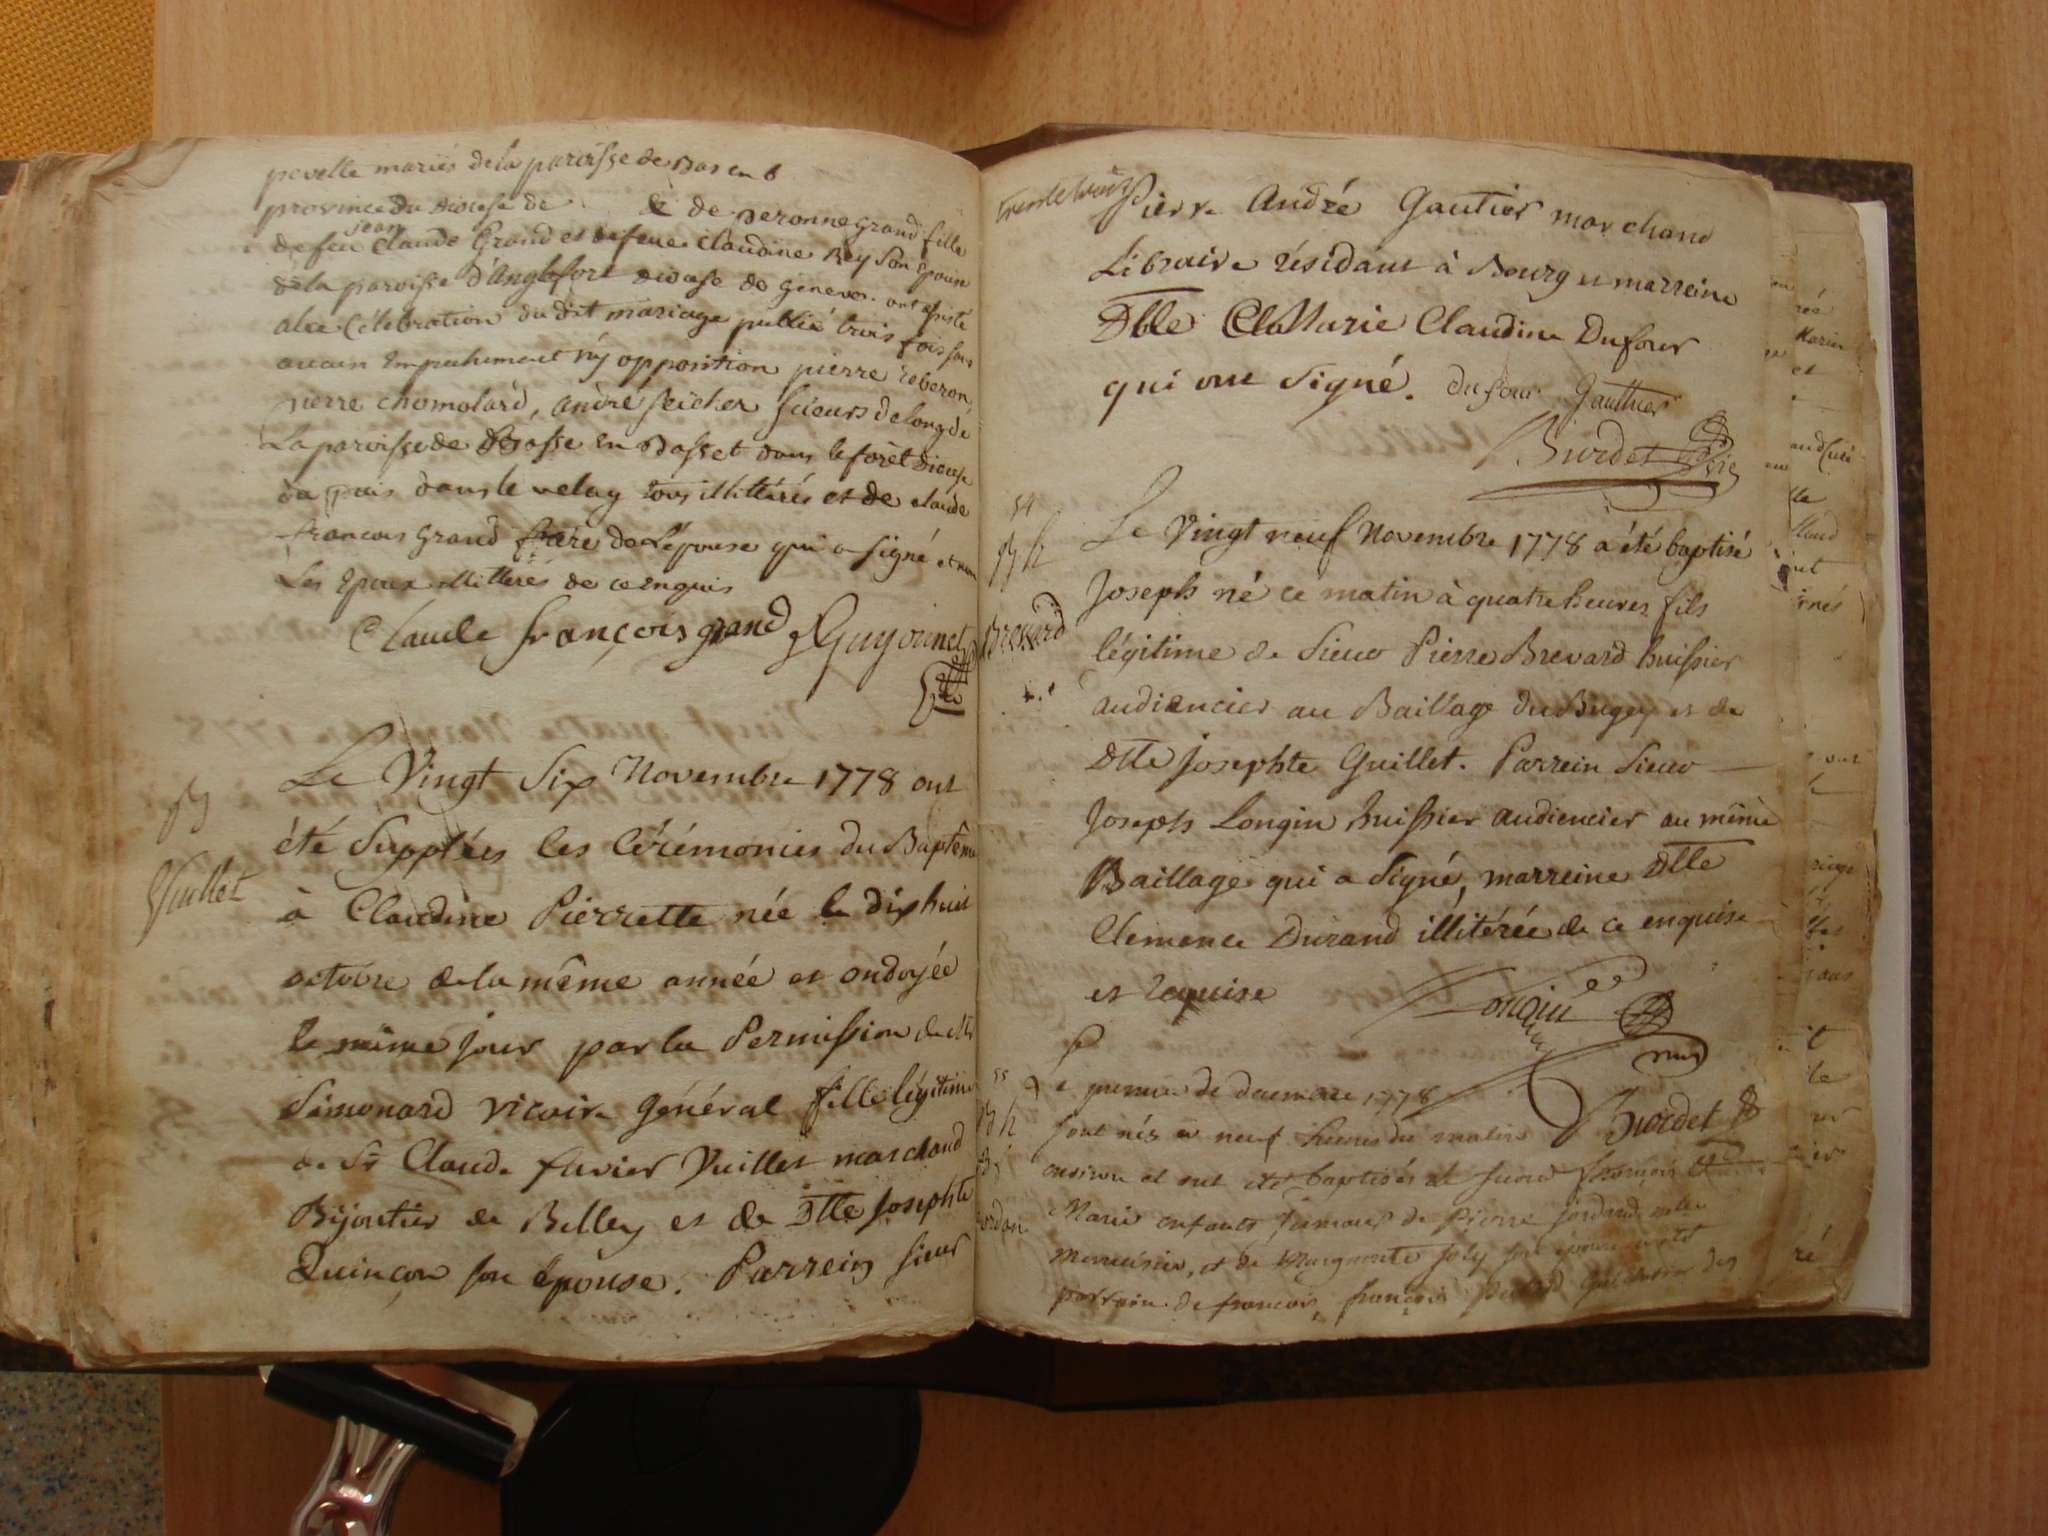 pevelle mariés de la paroisse de Bas en b
province du diocese de & de peronne grand fille
jean
de feu Claude Grand et de feue claudine Rey son epouse
de la paroisse d'Anglefort diocese de geneve. ont assisté
a la Célébration du dit mariage publié trois fois sans
aucun empechement ny opposition pierre
pierre chomolard, andré scieurs de long de
La paroisse de Basse en Basset dans le forêt diocese
du puis dans le velay tous illitérés et de claude
françois grand frere de L'épouse qui a signé et non
Les Epoux illitterés de ce enquis
Claude françois grand Guyonnet
Le Vingt Six Novembre 1778 ont
été Supplées les Cérémonies du Baptême
B
Vuillet
à Claudine Pierrette née le dix huit
octobre de la même année et ondoyée
le même jour par la Permission de Mr
Simonard vicaire général fille légitime
de Sr Claude Vuillet marchand
Bijoutier de Belley et de Dlle Josephte
Quinçon son épouse. Parrein sieur
trente trois
Pierre André Gautier marchand
Libraire résidant à Bourg et marreine
Dlle Marie Claudine Dufour
qui ont Signé. Dufour Gauthier
Burdet
54
B h
Brevard
Le Vingt neuf Novembre 1778 a été baptisé
Joseph né ce matin à quatre heures fils
légitime de Sieur Pierre Brevard huissier
audiencier au Baillage du Bugey et de
Dlle Josephte Guillet. Parrein Sieur
Joseph Longin huissier audiencier au même
Baillage qui a Signé, marreine Dlle
Clemence Durand illitérée de ce enquise
et requise Longin
Burdet
55
B h
Jordan
Le premier de decembre 1778
sont nés a neuf heures du matin
environ et ont eté baptisés françois et
Marie enfants jumeaux de Pierre jordand
menuisier, et de Marguerite joly son épouse
parrein de francois, françois